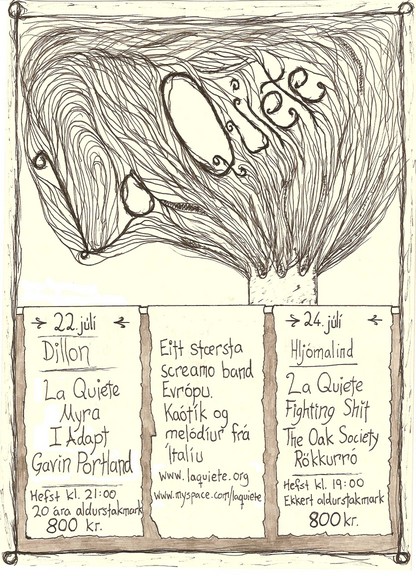 La Quiete
22. júlí
Dillon
La Quiete
Myra
I Adapt
Gavin Portland
Hefst kl. 21:00
20 ára aldurstakmark
800 kr.
Eitt stærsta
screamo band
Evrópu.
Kaótík og
melódíur frá
Ítalíu
www.laquiete.org
www.myspace.com/laquiete
24. júlí
Hljómalind
La Quiete
Fighting Shit
The Oak Society
Rökkurró
Hefst kl. 19:00
Ekkert aldurstakmark
800 kr.